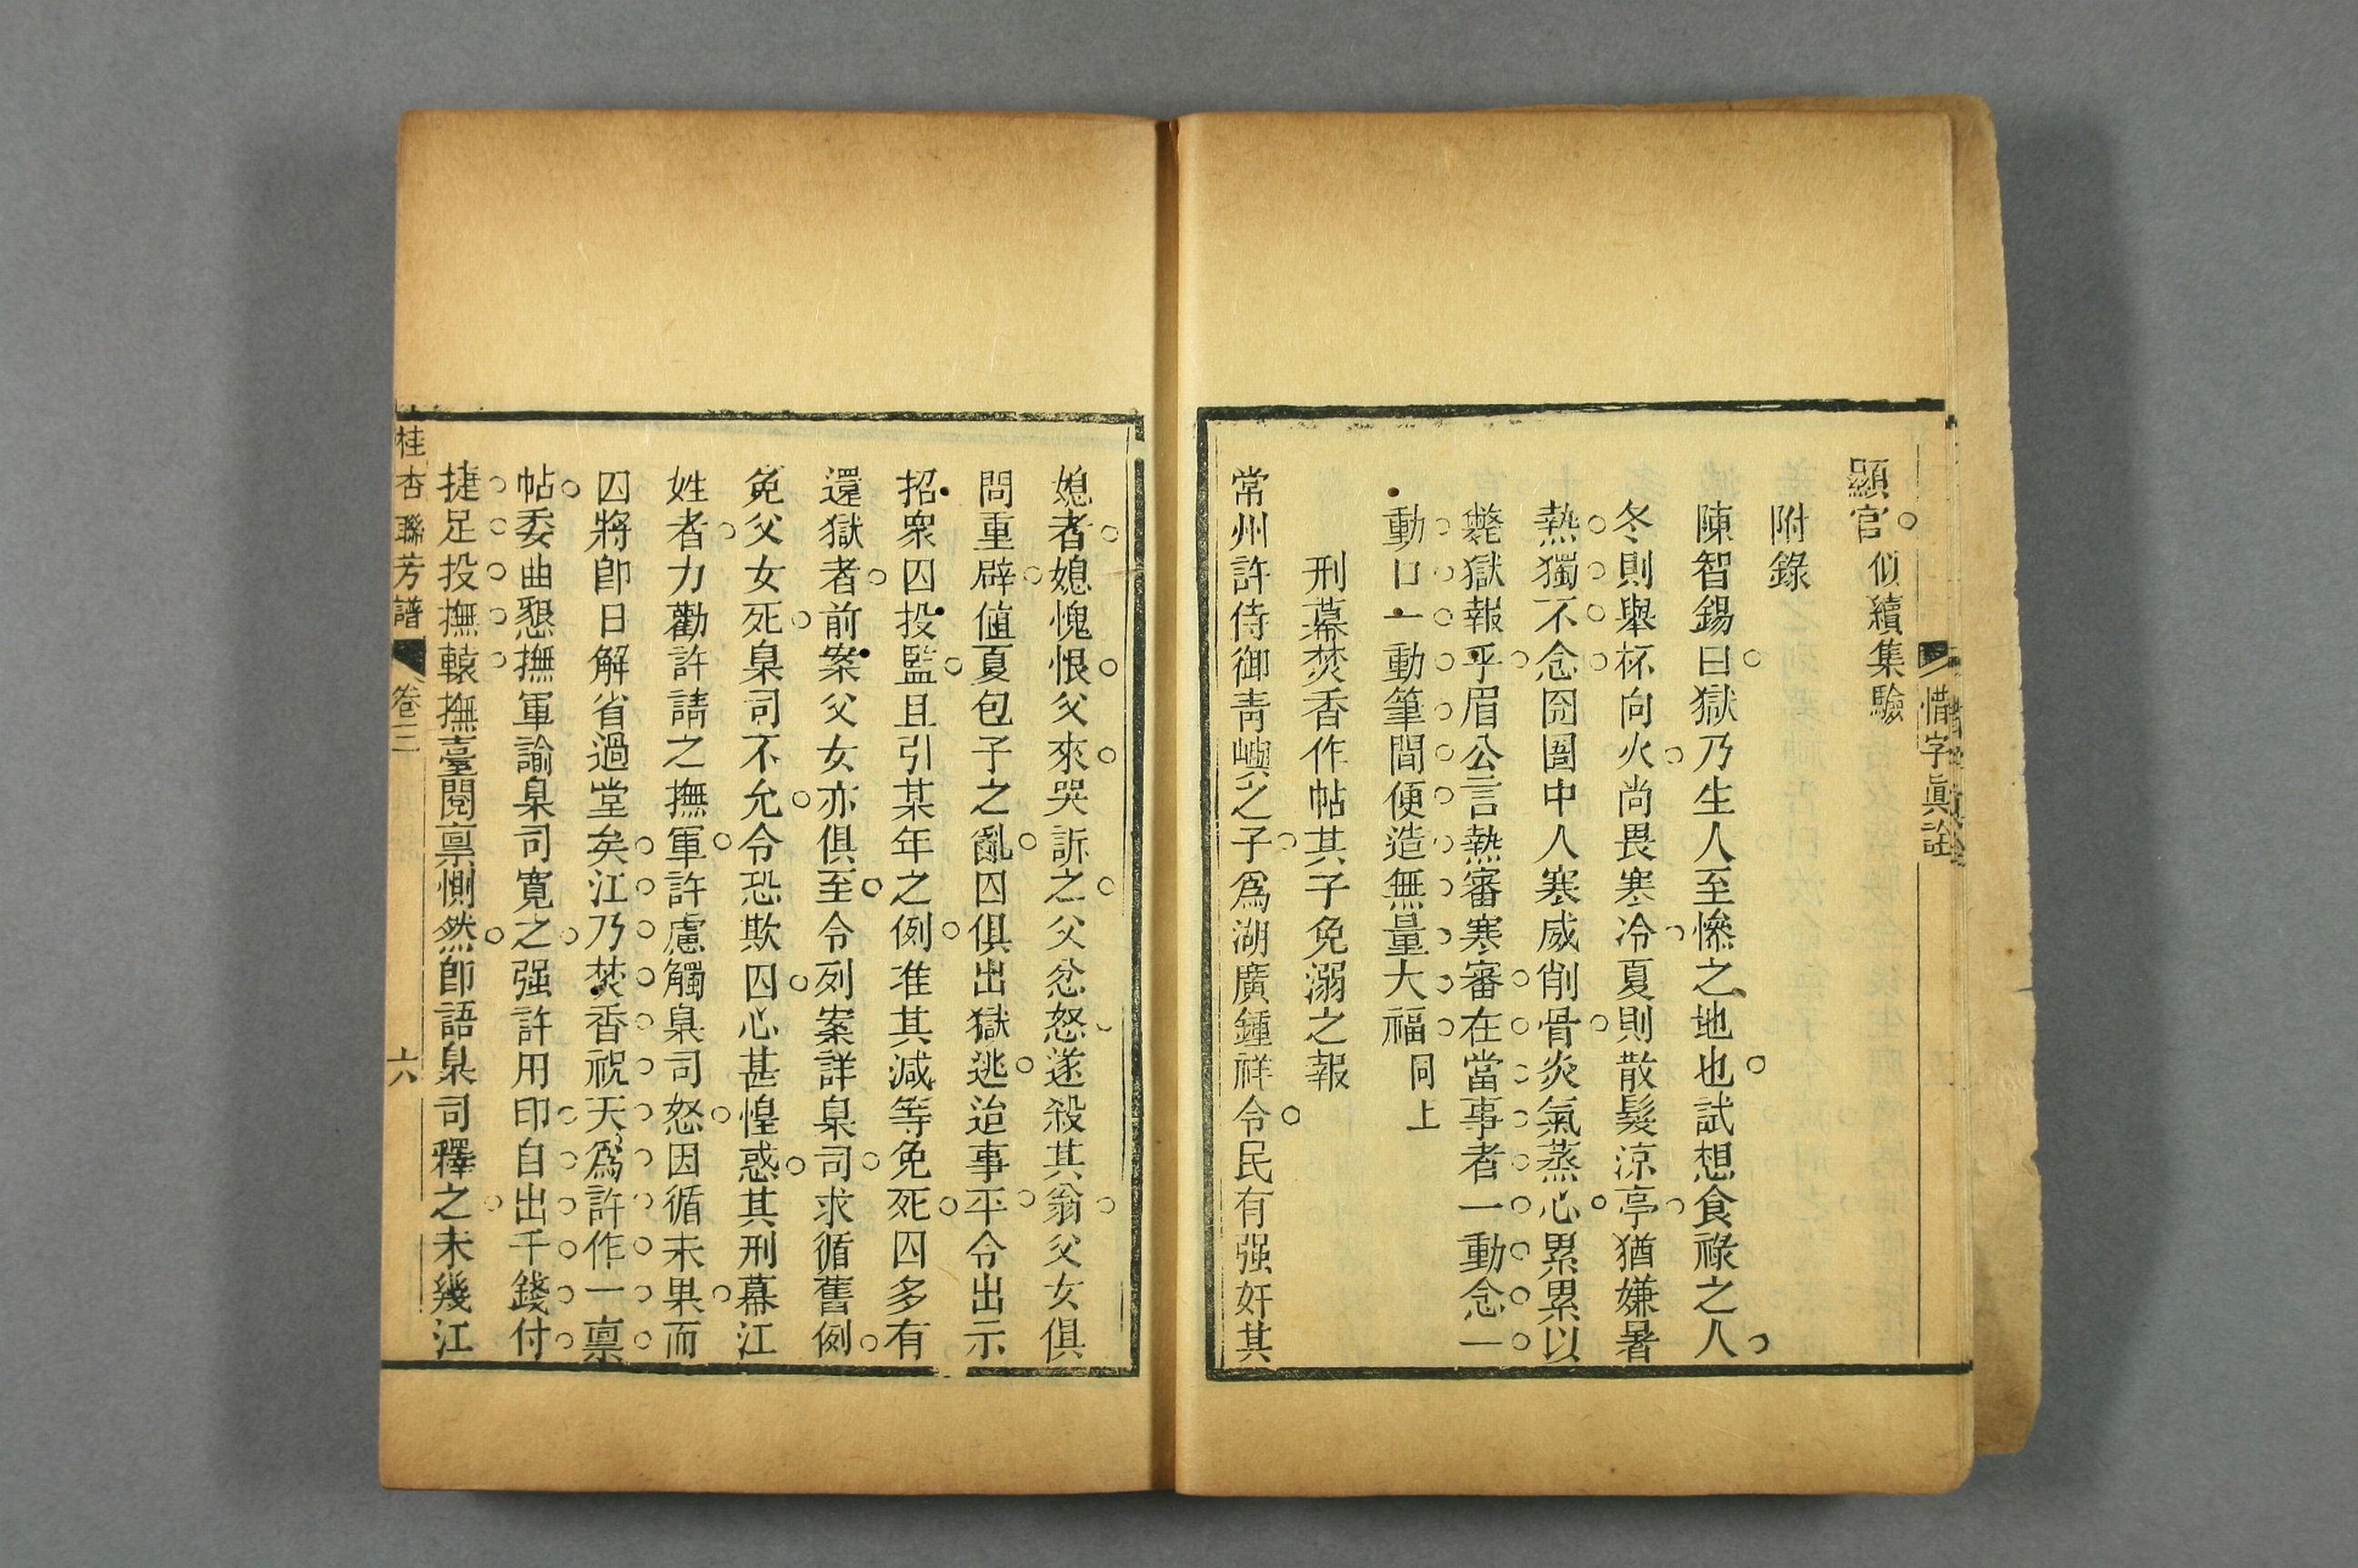 惜字眞詮
顯官似續集驗
附錄
陳智錫曰獄乃生人至慘之地也試想食祿之人
冬則舉杯向火尚畏寒冷夏則散髮涼亭猶嫌暑
熱獨不念囹圄中人寒威削骨炎氣蒸心累累以
斃獄報乎眉公言熱審寒審在當事者一動念一
動口一動筆間便造無量大福同上
刑幕焚香作帖其子免溺之報
常州許侍御靑嶼之子爲湖廣鍾祥令民有强奸其
媳者媳愧恨父來哭訴之父忿怒遂殺其翁父女俱
問重辟値夏包子之亂囚俱出獄逃迨事平令出示
招衆囚投監且引某年之例准其減等免死囚多有
還獄者前案父女亦俱至令列案詳臬司求循舊例
免父女死臬司不允令恐欺囚心甚惶惑其刑幕江
姓者力勸許請之撫軍許慮觸臬司怒因循未果而
囚將卽日解省過堂矣江乃焚香祝天爲許作一禀
帖委曲懇撫軍諭臬司寬之强許用印自出千錢付
捷足投撫轅撫臺閱禀惻然卽語臬司釋之未幾江
桂杏聯芳譜
卷三
六